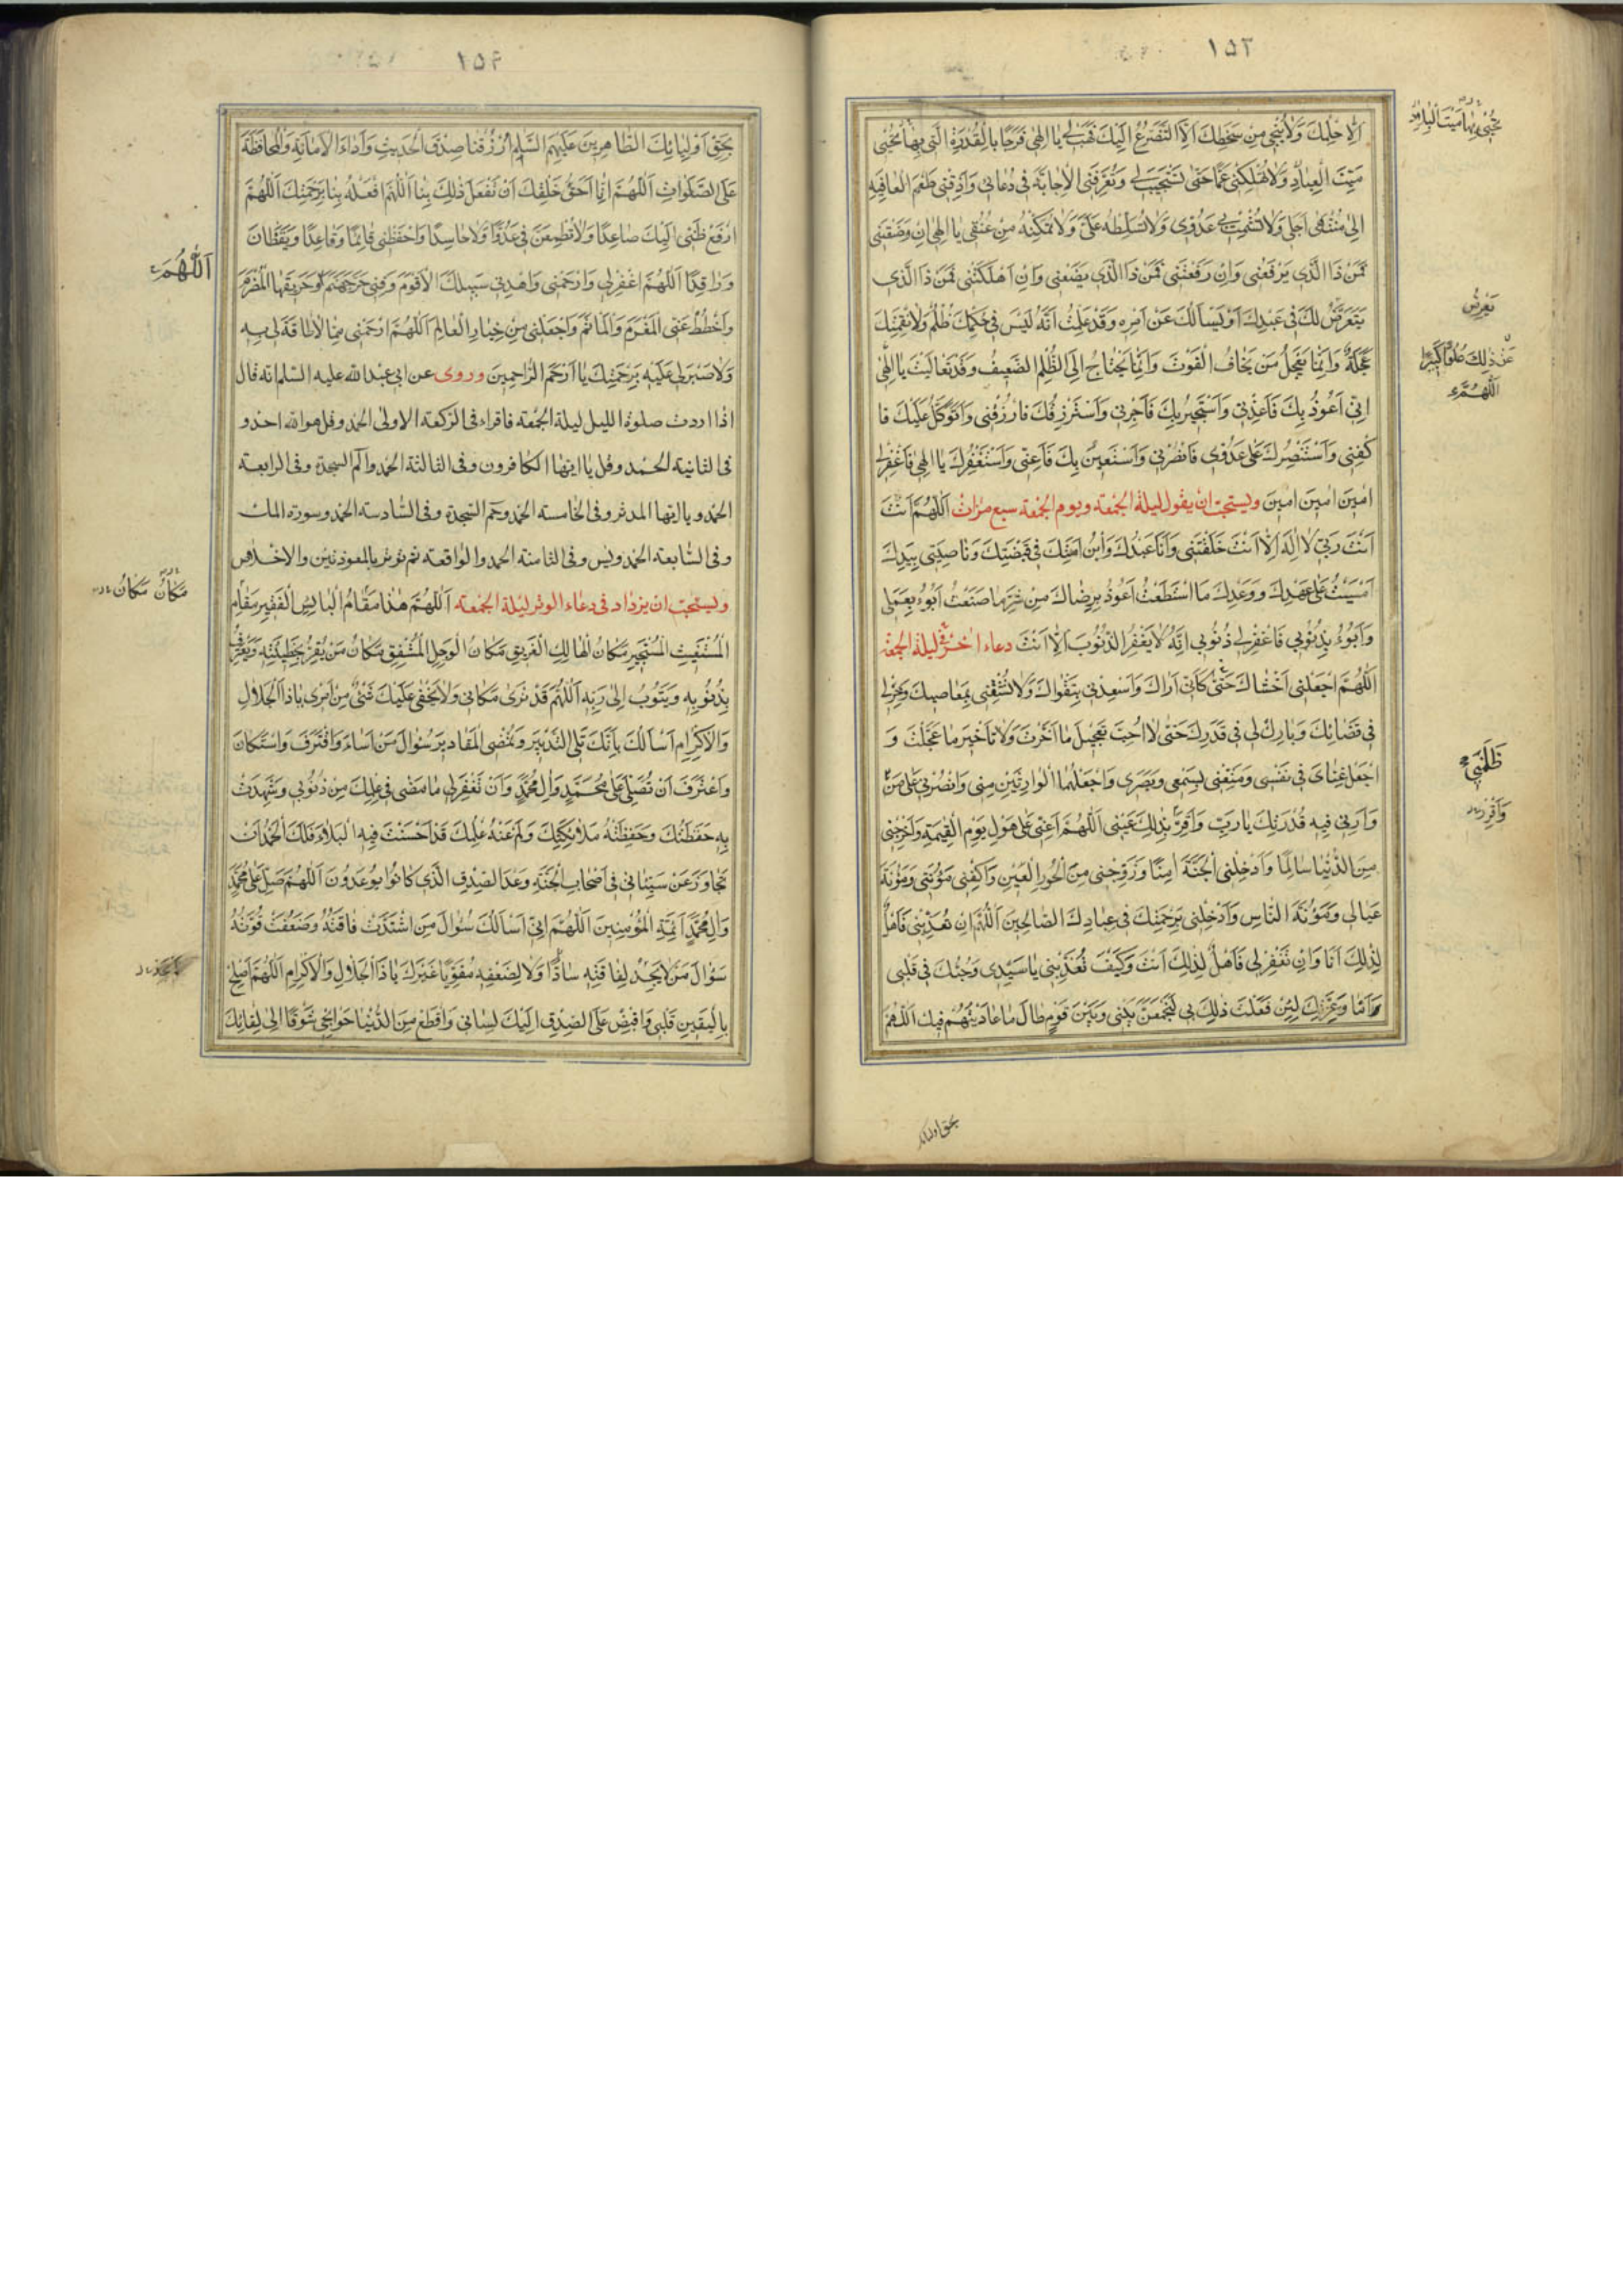 ١٥٣
اِلّا حِلْمُكَ وَلا يُنْجِي مِنْ سَخَطِكَ اِلَّا التَّضَرُّعُ اِلَيْكَ فَهَبْ لِي يا اِلهي فَرَجًا بِالْقُدْرَةِ الَّتي بِها تُحْيي
مَيِّتَ الْعِبادِ وَلا تُهْلِكْني غَمًّا حَتّى تَسْتَجيبَ لي وَتُعَرِّفَنِي الْاِجابَةَ في دُعائي وَاَذِقْني طَعْمَ الْعافِيَةِ
اِلى مُنْتَهى اَجَلي وَلا تُشْمِتْ بي عَدُوّي وَلا تُسَلِّطْهُ عَلَيَّ وَلا تُمَكِّنْهُ مِنْ عُنُقي يا اِلهي اِنْ وَضَعْتَني
فَمَنْ ذَا الَّذي يَرْفَعُني وَاِنْ رَفَعْتَني فَمَنْ ذَا الَّذي يَضَعُني وَاِنْ اَهْلَكْتَني فَمَنْ ذَا الَّذي
يَتَعَرَّضُ لَكَ في عَبْدِكَ اَوْ يَسْاَلُكَ عَنْ اَمْرِهِ وَقَدْ عَلِمْتُ اَنَّهُ لَيْسَ في حُكْمِكَ ظُلْمٌ وَلا نِقْمَتِكَ
عَجَلَةٌ وَاِنَّما يَعْجَلُ مَنْ يَخافُ الْفَوْتَ وَاِنَّما يَحْتاجُ اِلَى الظُّلْمِ الضَّعيفُ وَقَدْ تَعالَيْتَ يا اِلهي
اِنّي اَعُوذُ بِكَ فَاَعِذْني وَاَسْتَجيرُ بِكَ فَاَجِرْني وَاَسْتَرْزِقُكَ فَارْزُقْني وَاَتَوَكَّلُ عَلَيْكَ فَا
كْفِني وَاَسْتَنْصِرُكَ عَلى عَدُوّي فَانْصُرْني وَاَسْتَعينُ بِكَ فَاَعِنّي وَاَسْتَغْفِرُكَ يا اِلهي فَاغْفِرْ لي
امينَ امينَ امينَ ويستحبّ ان يقول ليلة الجمعة ويوم الجمعة سبع مرّات اَللّهُمَّ اَنْتَ
اَنْتَ رَبّي لا اِلهَ اِلّا اَنْتَ خَلَقْتَني وَاَنَا عَبْدُكَ وَابْنُ اَمَتِكَ في قَبْضَتِكَ وَناصِيَتي بِيَدِكَ
اَمْسَيْتُ عَلى عَهْدِكَ وَوَعْدِكَ مَا اسْتَطَعْتُ اَعُوذُ بِرِضاكَ مِنْ شَرِّ ما صَنَعْتُ اَبُوءُ بِعَمَلي
وَاَبُوءُ بِذُنُوبي فَاغْفِرْ لي ذُنُوبي اِنَّهُ لا يَغْفِرُ الذُّنُوبَ اِلّا اَنْتَ دعاء اخر في ليلة الجمعة
اَللّهُمَّ اجْعَلْني اَخْشاكَ حَتّى كَاَنّي اَراكَ وَاَسْعِدْني بِتَقْواكَ وَلا تُشْقِني بِمَعاصيكَ وَخِرْ لي
في قَضائِكَ وَبارِكْ لي في قَدَرِكَ حَتّى لا اُحِبَّ تَعْجيلَ ما اَخَّرْتَ وَلا تَاْخيرَ ما عَجَّلْتَ وَ
اجْعَلْ غِنايَ في نَفْسي وَمَتِّعْني بِسَمْعي وَبَصَري وَاجْعَلْهُمَا الْوارِثَيْنِ مِنّي وَانْصُرْني عَلى مَنْ
وَاَرِني فيهِ قُدْرَتَكَ يا رَبِّ وَاَقِرَّ بِذلِكَ عَيْني اَللّهُمَّ اَعِنّي عَلى هَوْلِ يَوْمِ الْقِيمَةِ وَاَخْرِجْني
مِنَ الدُّنْيا سالِمًا وَاَدْخِلْنِي الْجَنَّةَ امِنًا وَزَوِّجْني مِنَ الْحُورِ الْعينِ وَاكْفِني مَؤُنَتي وَمَؤُنَةَ
عَيالي وَمَؤُنَةَ النّاسِ وَاَدْخِلْني بِرَحْمَتِكَ في عِبادِكَ الصّالِحينَ اَللّهُمَّ اِنْ تُعَذِّبْني فَاَهْلٌ
لِذلِكَ اَنَا وَاِنْ تَغْفِرْ لي فَاَهْلٌ لِذلِكَ اَنْتَ وَكَيْفَ تُعَذِّبُني يا سَيِّدي وَحُبُّكَ في قَلْبي
اَما وَعِزَّتِكَ لَئِنْ فَعَلْتَ ذلِكَ بي لَتَجْمَعَنَّ بَيْني وَبَيْنَ قَوْمٍ طالَ ما عادَيْتُهُمْ فيكَ اَللّهُمَّ
تُحْيي بِها مَيِّتَ الْبِلادِ
تَعَرَّضُ
عَنْ ذلِكَ عُلُوًّا كَبيرًا
اَللّهُمَّ
ظَلَمَني
وَاَقْرِرْ
بحق اوليائك
١٥۴
بِحَقِّ اَوْلِيائِكَ الطّاهِرينَ عَلَيْهِمُ السَّلم ارْزُقْنا صِدْقَ الْحَديثِ وَاَداءَ الْاَمانَةِ وَالْمُحافَظَةَ
عَلَى الصَّلَواتِ اَللّهُمَّ اِنّا اَحَقُّ خَلْقِكَ اَنْ تَفْعَلَ ذلِكَ بِنا اَللّهُمَّ افْعَلْهُ بِنا بِرَحْمَتِكَ اَللّهُمَّ
ارْفَعْ ظَنّي اِلَيْكَ صاعِدًا وَلا تُطْمِعَنَّ فيَّ عَدُوًّا وَلا حاسِدًا وَاحْفَظْني قائِمًا وَقاعِدًا وَيَقْظانَ
وَراقِدًا اَللّهُمَّ اغْفِرْ لي وَارْحَمْني وَاهْدِني سَبيلَكَ الْاَقْوَمَ وَقِني حَرَّ جَهَنَّمَ وَحَريقَهَا الْمُضْرَمَ
وَاحْطُطْ عَنِّي الْمَغْرَمَ وَالْمَاْثَمَ وَاجْعَلْني مِنْ خِيارِ الْعالَمِ اَللّهُمَّ ارْحَمْني مِمّا لا طاقَةَ لي بِهِ
وَلا صَبْرَ لي عَلَيْهِ بِرَحْمَتِكَ يا اَرْحَمَ الرّاحِمينَ وروى عن ابي عبد الله عليه السّلم انه قال
اذا اردت صلوة الليل ليلة الجمعة فاقراء في الركعة الاولى الحمد وقل هو الله احد و
في الثانية الحمد وقل يا ايها الكافرون وفي الثالثة الحمد والم السجدة وفي الرابعة
الحمد ويا ايها المدثر وفي الخامسة الحمد وحم السجدة وفي السّادسة الحمد وسورة الملك
وفي السّابعة الحمد ويس وفي الثامنة الحمد والواقعة ثم توتر بالمعوذتين والاخلاص
ويستحبّ ان يزداد في دعاء الوتر ليلة الجمعة اَللّهُمَّ هذا مَقامُ الْبائِسِ الْفَقيرِ مَقامُ
الْمُسْتَغيثِ الْمُسْتَجيرِ مَكانُ الْهالِكِ الْغَريقِ مَكانُ الْوَجِلِ الْمُشْفِقِ مَكانُ مَنْ يُقِرُّ بِخَطيئَتِهِ وَيَعْتَرِفُ
بِذُنُوبِهِ وَيَتُوبُ اِلى رَبِّهِ اَللّهُمَّ قَدْ تَرى مَكاني وَلا يَخْفى عَلَيْكَ شَيْءٌ مِنْ اَمْري يا ذَا الْجَلالِ
وَالْاِكْرامِ اَسْاَلُكَ بِاَنَّكَ تَلِي التَّدْبيرَ وَتُمْضِي الْمَقاديرَ سُؤالَ مَنْ اَساءَ وَاقْتَرَفَ وَاسْتَكانَ
وَاعْتَرَفَ اَنْ تُصَلِّيَ عَلى مُحَمَّدٍ وَالِ مُحَمَّدٍ وَاَنْ تَغْفِرَ لي ما مَضى في عِلْمِكَ مِنْ ذُنُوبي وَشَهِدَتْ
بِهِ حَفَظَتُكَ وَحَفِظَتْهُ مَلائِكَتُكَ وَلَمْ يَغِبْ عَنْهُ عِلْمُكَ قَدْ اَحْسَنْتَ فيهِ الْبَلاءَ فَلَكَ الْحَمْدُ اَنْ
تَجاوَزَ عَنْ سَيِّئاتي في اَصْحابِ الْجَنَّةِ وَعْدَ الصِّدْقِ الَّذي كانُوا يُوعَدُونَ اَللّهُمَّ صَلِّ عَلى مُحَمَّدٍ
وَالِ مُحَمَّدٍ اَئِمَّةِ الْمُؤْمِنينَ اَللّهُمَّ اِنّي اَسْاَلُكَ سُؤالَ مَنِ اشْتَدَّتْ فاقَتُهُ وَضَعُفَتْ قُوَّتُهُ
سُؤالَ مَنْ لا يَجِدُ لِفاقَتِهِ سادًّا وَلا لِضَعْفِهِ مُقَوِّيًا غَيْرَكَ يا ذَا الْجَلالِ وَالْاِكْرامِ اَللّهُمَّ اَصْلِحْ
بِالْيَقينِ قَلْبي وَاقْبِضْ عَلَى الصِّدْقِ اِلَيْكَ لِساني وَاقْطَعْ مِنَ الدُّنْيا حَوائِجي شَوْقًا اِلى لِقائِكَ
اَللّهُمَّ
مَكانُ مَكانُ